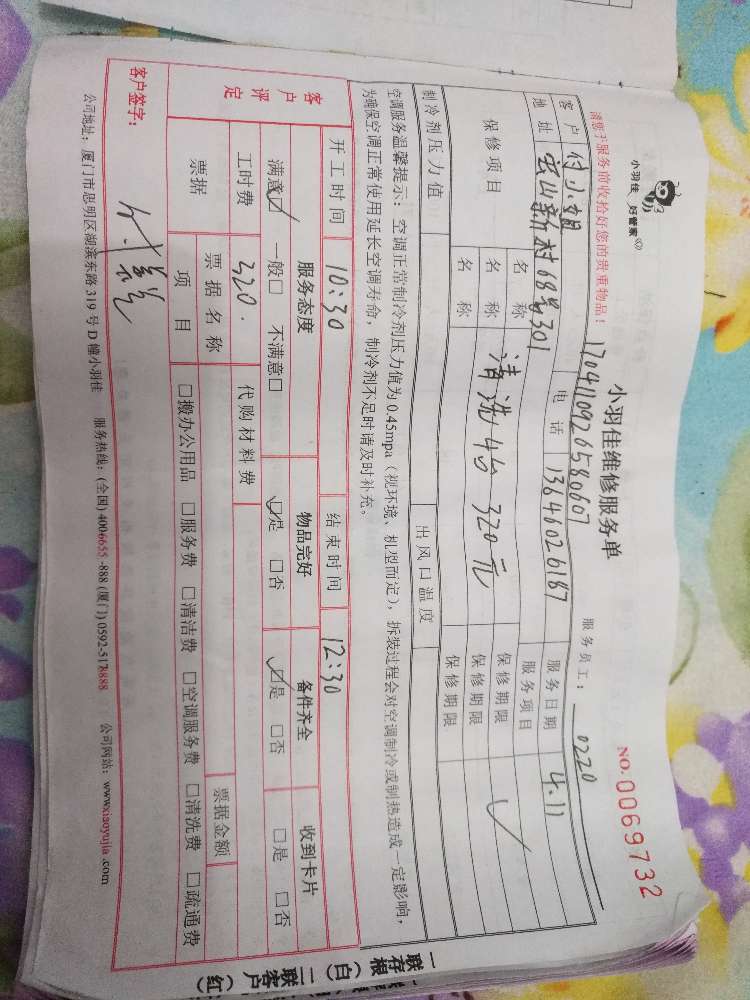 小羽佳 好管家
小羽佳维修服务单
NO.0069732
请您于服务前收拾好您的贵重物品!
1704110926580607
服务员工: 0220
客户 付小姐 电话 13646026187 服务日期 4.11
地址 云山新村68号301 服务项目
保修项目 名称 清洗4台 320元 保修期限
名称 保修期限
名称 保修期限
制冷剂压力值 出风口温度
空调服务温馨提示:空调正常制冷剂压力值为0.45mpa(视环境、机型而定),拆装过程会对空调制冷或制热造成一定影响,
为确保空调正常使用延长空调寿命,制冷剂不足时请及时补充。
开工时间 10:30 结束时间 12:30
客户评定 服务态度 物品完好 备件齐全 收到卡片
满意☑ 一般□ 不满意□ ☑是 □否 ☑是 □否 □是 □否
工时费 320. 代购材料费
票据 票据名称 票据金额
项目 □搬办公用品 □服务费 □清洁费 □空调服务费 □清洗费 □疏通费
客户签字:
公司地址:厦门市思明区湖滨东路319号D幢小羽佳 服务热线:(全国)4006655-888(厦门)0592-5178888 公司网站:www.xiaoyujia.com
一联存根(白) 二联客户(红)